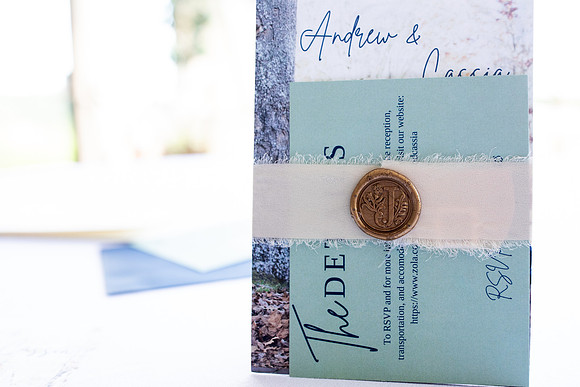 Andrew &
Cassia
The DET S
To RSVP and for more i e reception,
transportation, and accomoda isit our website:
https://www.zola.co dcassia
RSV
J